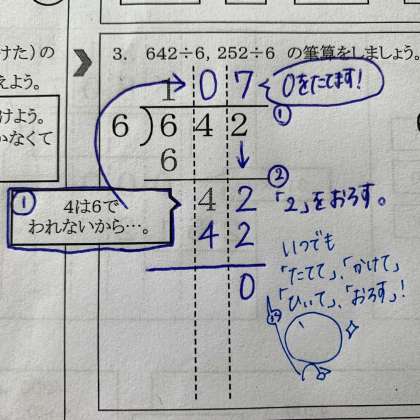 けた）の
えよう。
けよう。
かなくて
3. 642÷6, 252÷6 の筆算をしましょう。
1 0 7
0をたてます！
①
6)642
6
②
4 2
「2」をおろす。
① 4は6で
われないから…。
4 2
0
いつでも
「たてて」、「かけて」
「ひいて」、「おろす」！